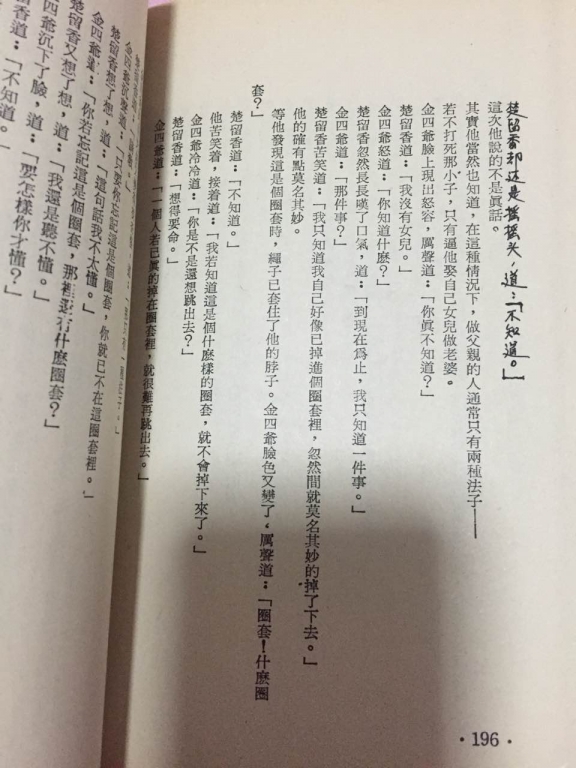 楚留香却还是搖搖头,道:「不知道。」
這次他說的不是眞話。
其實他當然也知道,在這種情況下,做父親的人通常只有兩種法子——
若不打死那小子,只有逼他娶自己女兒做老婆。
金四爺臉上現出怒容,厲聲道:「你眞不知道?」
楚留香道:「我沒有女兒。」
金四爺怒道:「你知道什麽?」
楚留香忽然長長嘆了口氣,道:「到現在爲止,我只知道一件事。」
金四爺道:「那件事?」
楚留香苦笑道:「我只知道我自己好像已掉進個圈套裡,忽然間就莫名其妙的掉了下去。」
他的確有點莫名其妙。
等他發現這是個圈套時,繩子已套住了他的脖子。金四爺臉色又變了,厲聲道:「圈套!什麽圈
套?」
楚留香道:「不知道。」
他苦笑着,接着道:「我若知道這是個什麽樣的圈套,就不會掉下來了。」
金四爺冷冷道:「你是不是還想跳出去?」
楚留香道:「想得要命。」
金四爺道:「一個人若已眞的掉在圈套裡,就很難再跳出去。」
金四爺沉聲道:「只要你忘記這是個圈套,你就已不在這圈套裡。」
楚留香想了想,道:「這句話我不太懂。」
金四爺道:「你若忘記這是個圈套,那裡還有什麽圈套?」
楚留香又想了想,道:「我還是聽不懂。」
金四爺沉下了臉,道:「要怎樣你才懂?」
楚留香道:「不知道。」
·196·